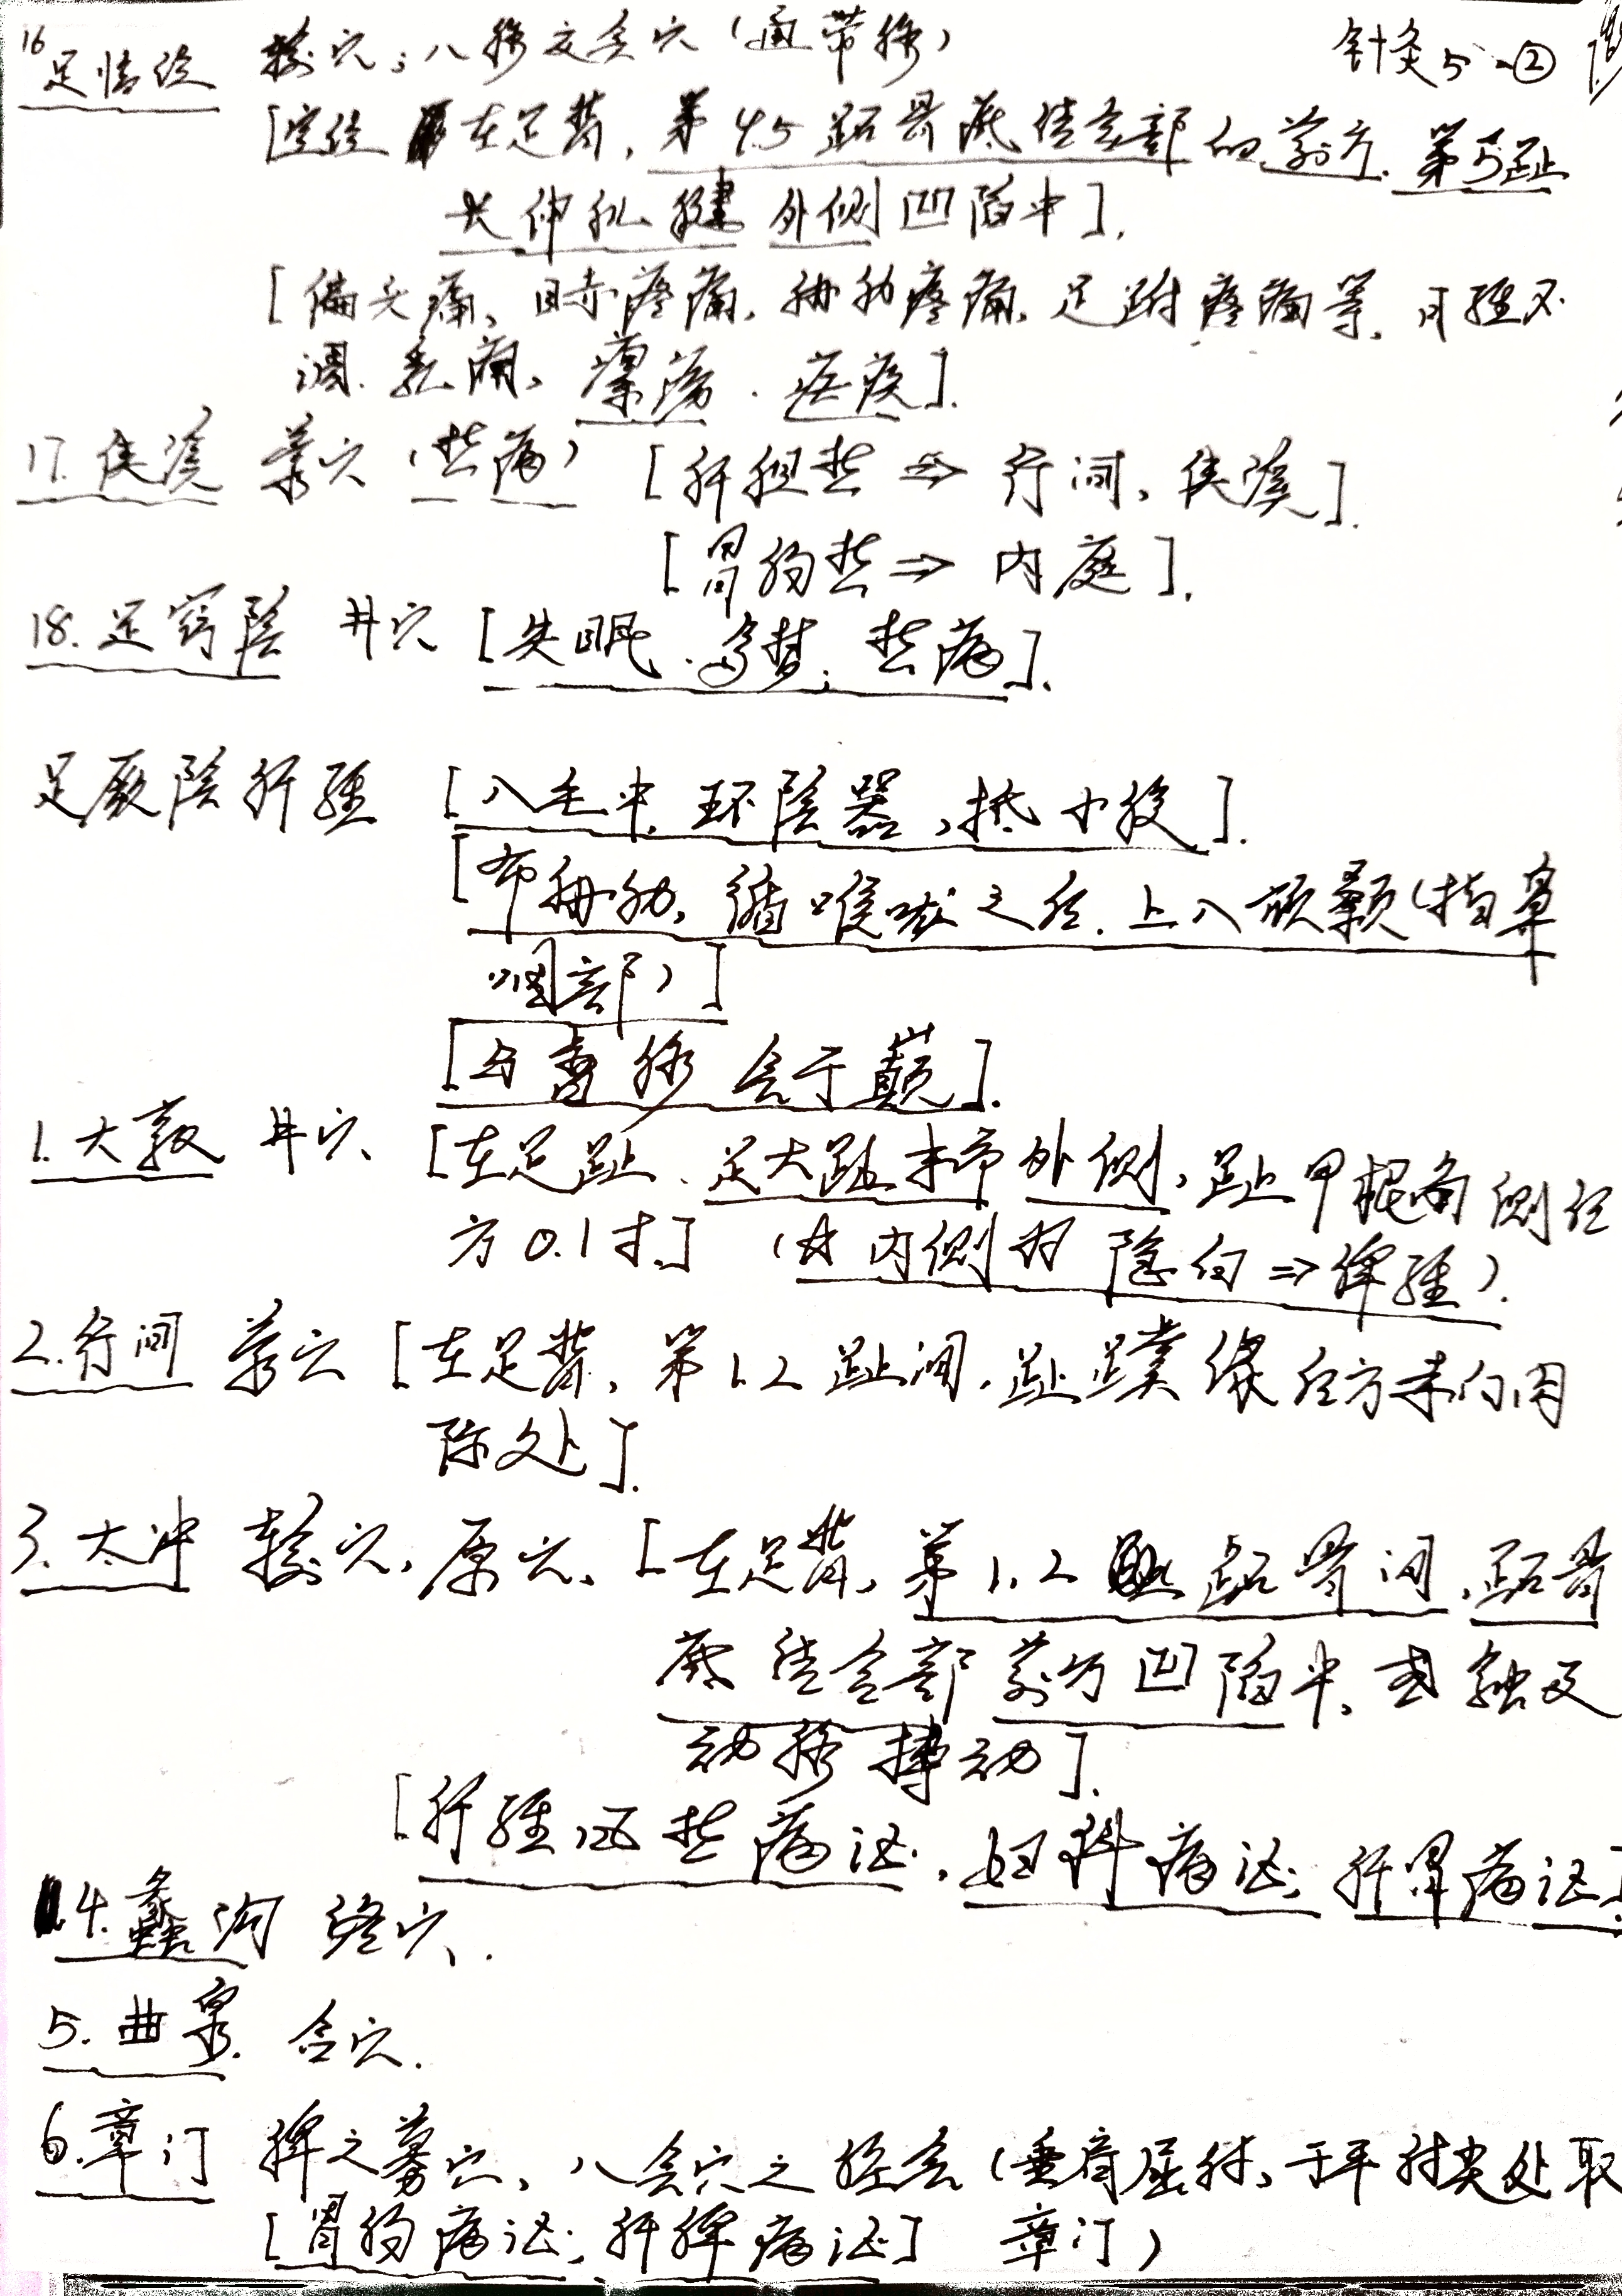 针灸5-②
16 足临泣 输穴；八脉交会穴（通带脉）
[定位 在足背，第4.5跖骨底结合部的前方，第5趾
长伸肌腱外侧凹陷中].
[偏头痛、目赤疼痛，胁肋疼痛，足跗疼痛等，月經不
调.乳痈、瘰疬.疟疾].
17.侠溪 荥穴（热病）[肝胆热⇒行间、侠溪].
[胃肠热⇒内庭].
18.足窍陰 井穴 [失眠.多梦；热病].
足厥陰肝經 [入毛中，环陰器，抵小腹].
[布胁肋，循喉咙之后.上入颃颡（指鼻
咽部）]
[与督脉会于巅].
1.大敦 井穴 [在足趾.足大趾末节外侧，趾甲根角侧后
方0.1寸] （其内侧为隐白⇒脾經）.
2.行间 荥穴 [在足背，第1.2趾间，趾蹼缘后方赤白肉
际处].
3.太冲 输穴，原穴、[在足背，第1.2跖骨间，跖骨
底结合部前方凹陷中，或触及
动脉搏动].
[肝經风热病证，妇科病证；肝胃病证]
4.蠡沟 络穴.
5.曲泉. 合穴.
6.章门 脾之募穴，八会穴之脏会（垂肩屈肘，于平肘尖处取
[胃肠病证；肝脾病证] 章门）